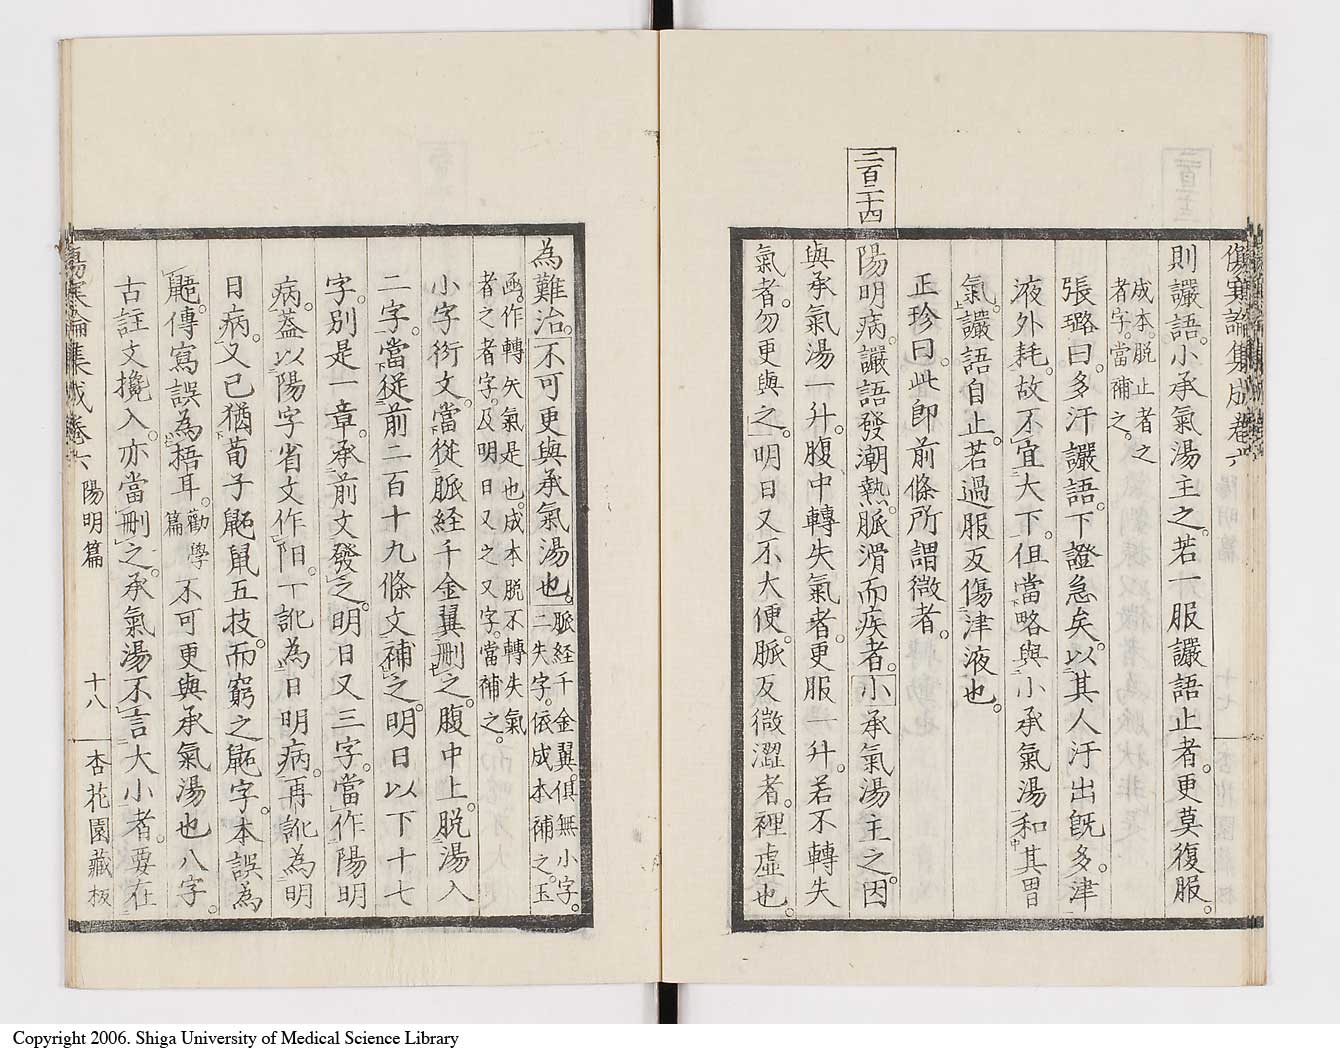 傷寒論集成卷六
則讝語。小承氣湯主之。若一服讝語止者。更莫復服。
成本。脫止者之
者字。當補之。
張璐曰。多汗讝語。下證急矣。以其人汗出既多。津
液外耗。故不宜大下。但當略與小承氣湯。和其胃
氣。讝語自止。若過服反傷津液也。
正珍曰。此即前條所謂微者。
二百二十四
陽明病。讝語發潮熱。脈滑而疾者。小承氣湯主之。因
與承氣湯一升。腹中轉失氣者。更服一升。若不轉失
氣者。勿更與之。明日又不大便。脈反微澀者。裡虛也。
為難治。不可更與承氣湯也。
脈経千金翼。俱無小字。
二失字。依成本補之。玉
函。作轉矢氣是也。成本脫不轉失氣
者之者字。及明日又之又字。當補之。
小字衍文。當從脈経千金翼刪之。腹中上。脫湯入
二字。當従前二百十九條文補之。明日以下十七
字。別是一章。承前文發之。明日又三字。當作陽明
病。蓋以陽字省文作阳。一訛為日明病。再訛為明
日病。又已猶荀子鼫鼠五技。而窮之鼫字。本誤為
鼯。傳寫誤為梧耳。
勸學
篇
不可更與承氣湯也八字。
古註文攙入。亦當刪之。承氣湯不言大小者。要在
傷寒論集成卷六
陽明篇
十八
杏花園藏板